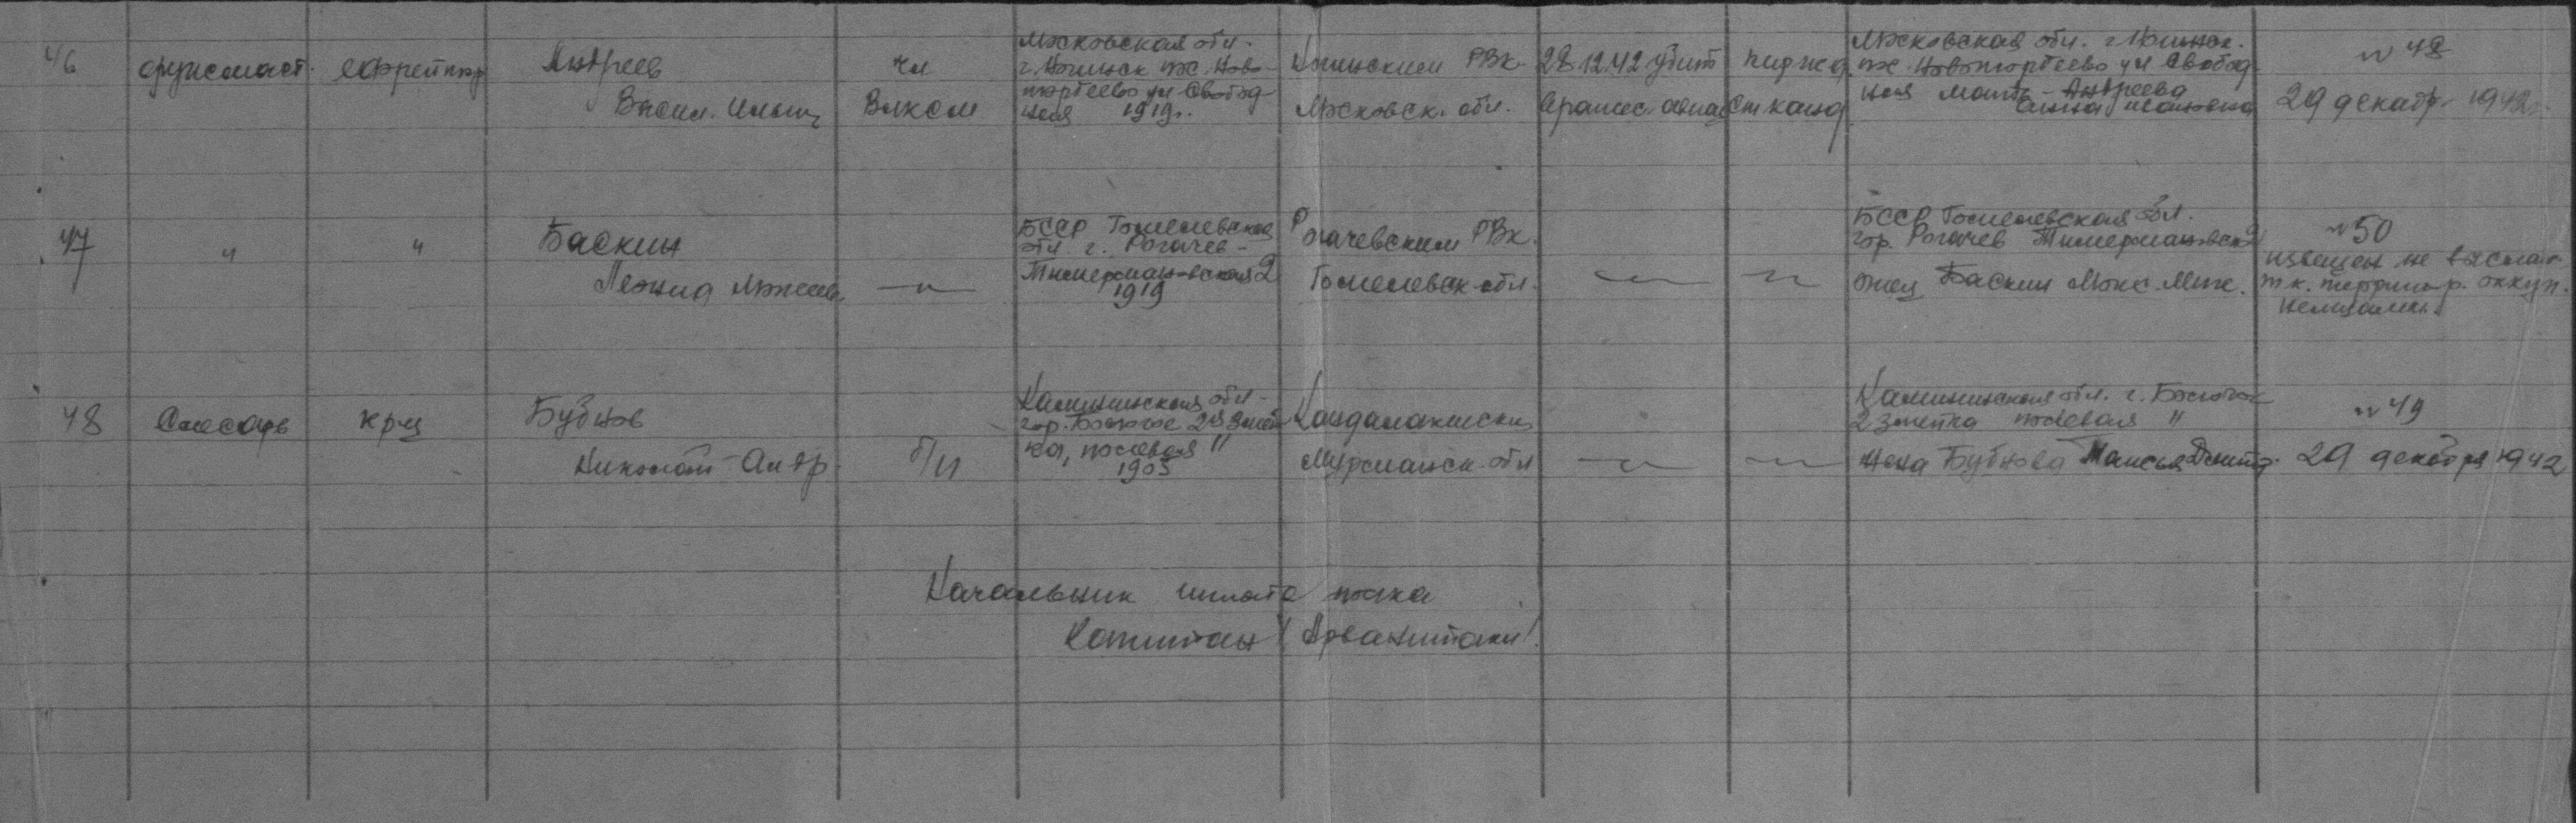 46 оружмаст. ефрейтор Андреев Васил. Ильич чл ВЛКСМ
Московская обл.
г. Ногинск пос. Ново-
тюрбеево ул Свобод-
ная 1919г.
Ногинским РВК
Московск. обл.
28.12.42 убит
вражес. авиац
ст. Канд.
Московская обл. г. Ногинск.
пос. Новотюрбеево ул Свобод-
ная Мать - Андреева
Анна Ивановна
№ 48
29 декабр. 1942г.
47 " " Баскин
Леонид Моисеев. —"—
БССР Гомелевская
обл. г. Рогачев -
Тимермановская 2
1919
Рогачевским РВК.
Гомелевск. обл.
—"— —"—
БССР Гомелевская обл.
гор. Рогачев Тимермановск 2
отец Баскин Моис.
№ 50
извещен не высла-
т.к. территор. оккуп.
немцами.
48 Слесарь кр-ц Бубнов
Николай Андр. б/п
Калининская обл.
гор. Бологое 2я Змей-
ка, полевая 11
1905
Кандалакшски
Мурманск. обл
—"— —"—
Калининская обл. г. Бологое
2 Змейка полевая 11
жена Бубнова Таисья Дмит.
№ 49
29 декабря 1942
Начальник штаба полка
Капитан / Арванитаки /